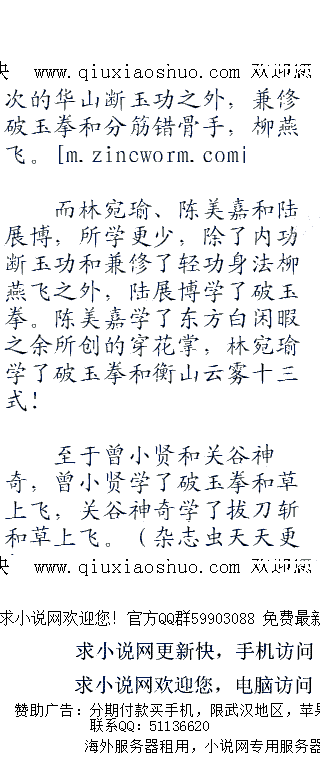 快 www.qiuxiaoshuo.com 欢迎您
次的华山断玉功之外，兼修
破玉拳和分筋错骨手，柳燕
飞。[m.zincworm.com]
而林宛瑜、陈美嘉和陆
展博，所学更少，除了内功
断玉功和兼修了轻功身法柳
燕飞之外，陆展博学了破玉
拳。陈美嘉学了东方白闲暇
之余所创的穿花掌，林宛瑜
学了破玉拳和衡山云雾十三
式！
至于曾小贤和关谷神
奇，曾小贤学了破玉拳和草
上飞，关谷神奇学了拔刀斩
和草上飞。（杂志虫天天更
快 www.qiuxiaoshuo.com 欢迎您
求小说网欢迎您! 官方QQ群59903088 免费最新
求小说网更新快，手机访问
求小说网欢迎您，电脑访问
赞助广告：分期付款买手机，限武汉地区，苹果
联系QQ：51136620
海外服务器租用，小说网专用服务器